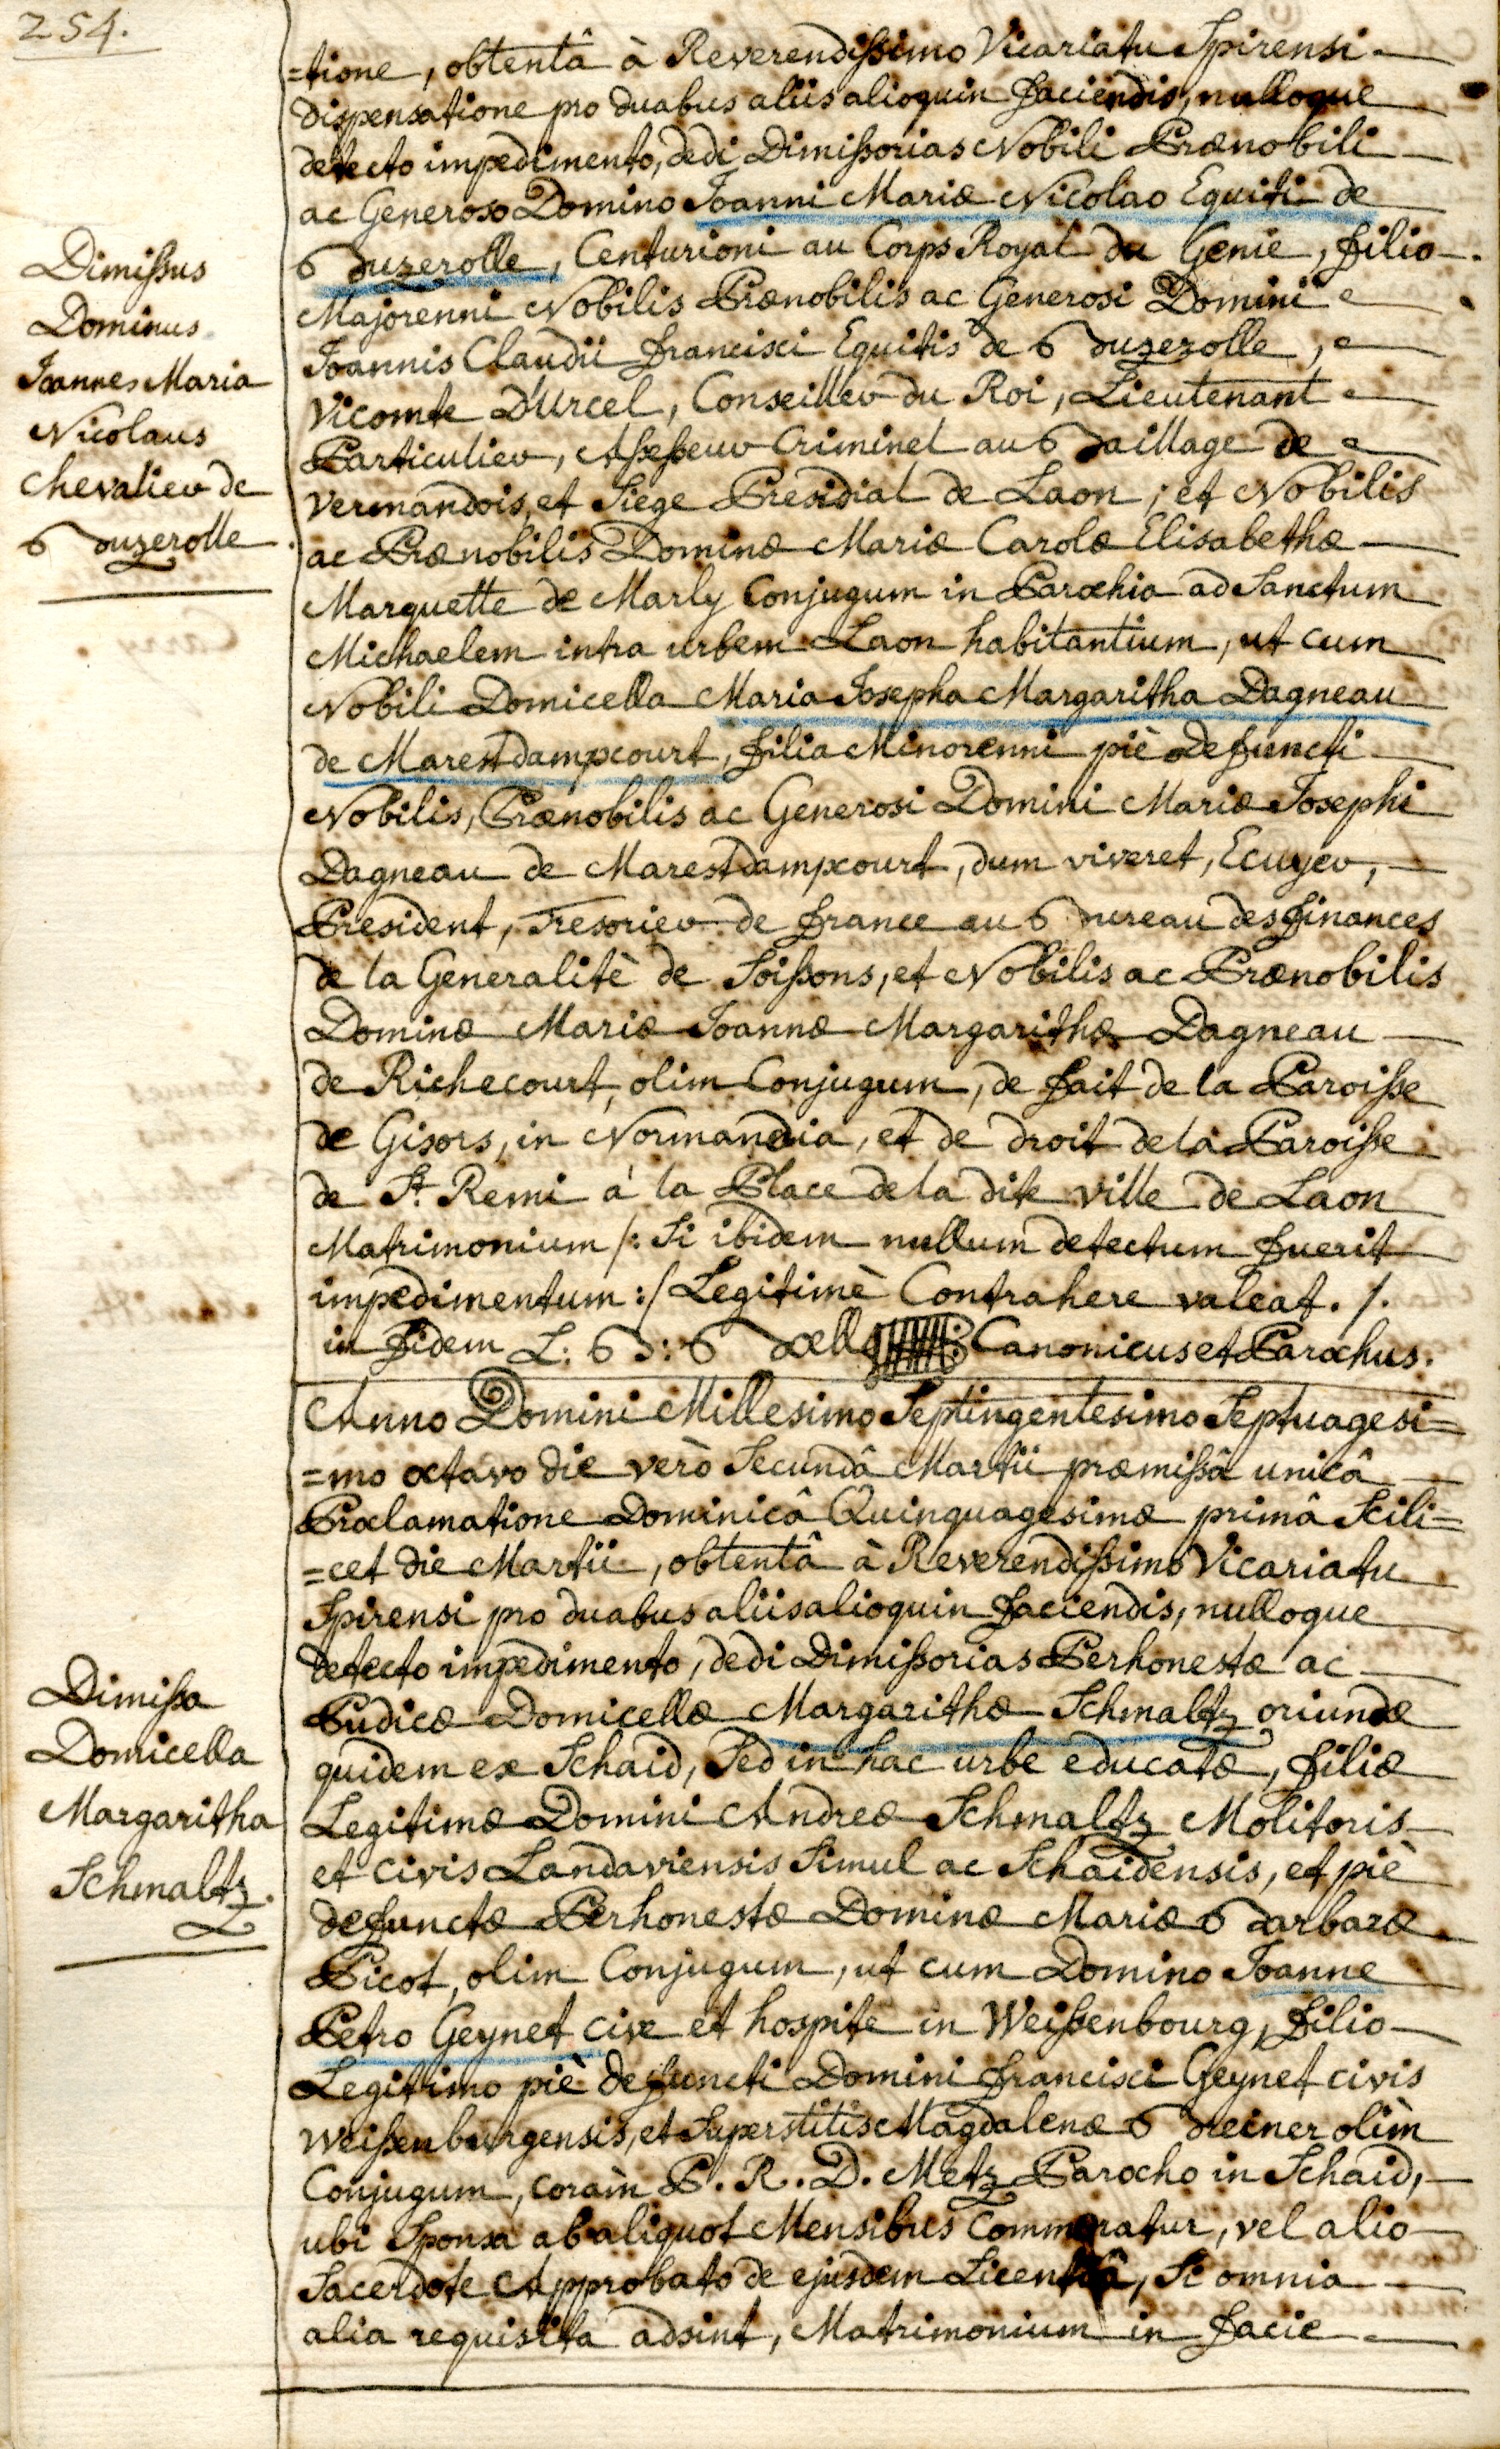 254.
=tione, obtentâ à Reverendissimo Vicariatu Spirensi
dispensatione pro duabus aliis alioquin faciendis, nulloque
detecto impedimento, dedi Dimissorias Nobili Prænobili
ac Generoso Domino Joanni Mariæ Nicolao Equiti de
Bouzerolle, Centurioni au Corps Royal du Genie, filio
Majorenni Nobilis Prænobilis ac Generosi Domini
Joannis Claudii Francisci Equitis de Bouzerolle,
Vicomte D'Urcel, Conseiller du Roi, Lieutenant
Particulier, Assesseur Criminel au Baillage de
Vermandois, et Siege Presidial de Laon; et Nobilis
ac Prænobilis Dominæ Mariæ Carolæ Elisabethæ
Marquette de Marly Conjugum in Parochia ad Sanctum
Michaelem intra urbem Laon habitantium, ut cum
Nobili Domicella Maria Josepha Margaritha Dagneau
de Marestdampcourt, filia Minorenni piè defuncti
Nobilis, Prænobilis ac Generosi Domini Mariæ Josephi
Dagneau de Marestdampcourt, dum viveret, Ecuyer,
President, Tresorier de france au Bureau des finances
de la Generalitè de Soissons, et Nobilis ac Prænobilis
Dominæ Mariæ Joannæ Margarithæ Dagneau
de Richecourt, olim Conjugum, de fait de la Paroisse
de Gisors, in Normandia, et de droit de la Paroisse
de St. Remi à la Place de la dite ville de Laon
Matrimonium /: Si ibidem nullum detectum fuerit
impedimentum :/ Legitimè Contrahere valeat. /.
in fidem L: B: Böell Canonicus et Parochus.
Dimissus
Dominus
Joannes Maria
Nicolaus
Chevalier de
Bouzerolle
Anno Domini Millesimo Septingentesimo Septuagesi=
=mo octavo die verò Secundâ Martii præmissâ unicâ
Proclamatione Dominicâ Quinquagesimæ primâ Scili=
=cet die Martii, obtentâ à Reverendissimo Vicariatu
Spirensi pro duabus aliis alioquin faciendis, nulloque
detecto impedimento, dedi Dimissorias Perhonestæ ac
Pudicæ Domicellæ Margarithæ Schmaltz oriundæ
quidem ex Schaid, Sed in hac urbe educatæ, filiæ
Legitimæ Domini Andreæ Schmaltz Molitoris
et Civis Landaviensis Simul ac Schaidensis, et piè
defunctæ Perhonestæ Dominæ Mariæ Barbaræ
Picot, olim Conjugum, ut cum Domino Joanne
Petro Geynet Cive et hospite in Weissenbourg, filio
Legitimo piè defuncti Domini Francisci Geynet civis
Weissenburgensis, et Superstitis Magdalenæ Breiner olim
Conjugum, coràm P. R. D. Metz Parocho in Schaid,
ubi Sponsa ab aliquot Mensibus Commoratur, vel alio
Sacerdote Approbato de ejusdem Licentiâ, Si omnia
alia requisita adsint, Matrimonium in facie
Dimissa
Domicella
Margaritha
Schmaltz.